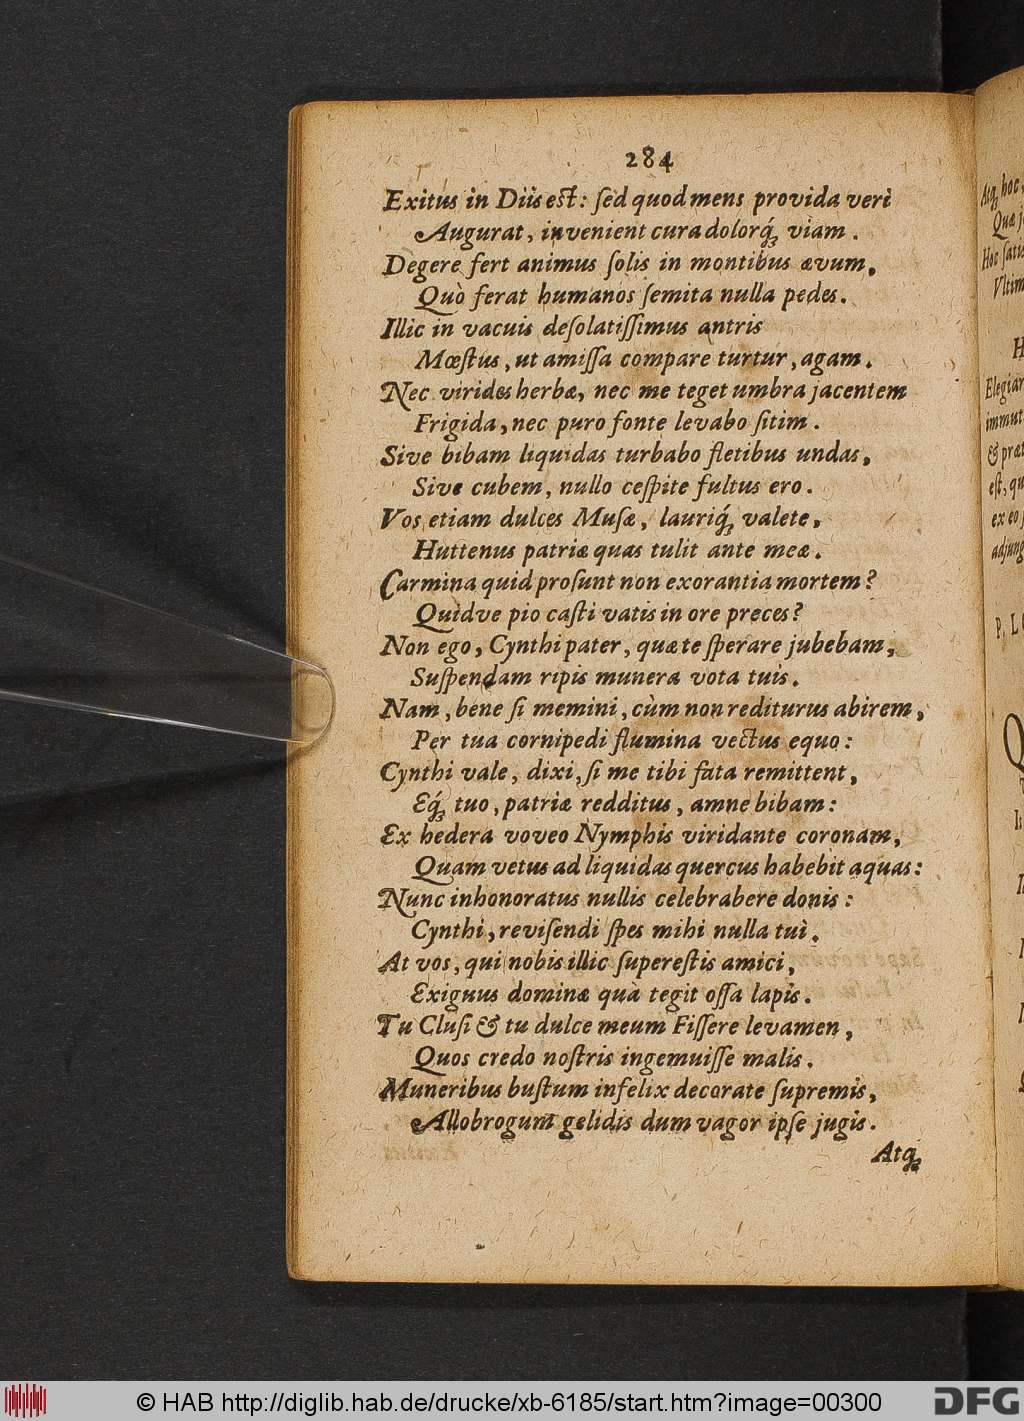 284
Exitus in Diis est: ſed quod mens provida veri
Augurat, invenient cura dolorq́; viam.
Degere fert animus ſolis in montibus ævum,
Quò ferat humanos ſemita nulla pedes.
Illic in vacuis deſolatiſſimus antris
Mœſtus, ut amiſſa compare turtur, agam.
Nec virides herbæ, nec me teget umbra jacentem
Frigida, nec puro fonte levabo ſitim.
Sive bibam liquidas turbabo fletibus undas,
Sive cubem, nullo ceſpite fultus ero.
Vos etiam dulces Muſæ, lauriq́; valete,
Huttenus patriæ quas tulit ante meæ.
Carmina quid proſunt non exorantia mortem?
Quidve pio caſti vatis in ore preces?
Non ego, Cynthi pater, quæ te ſperare jubebam,
Suſpendam ripis munera vota tuis.
Nam, bene ſi memini, cùm non rediturus abirem,
Per tua cornipedi flumina vectus equo:
Cynthi vale, dixi, ſi me tibi fata remittent,
Eq́; tuo, patriæ redditus, amne bibam:
Ex hedera voveo Nymphis viridante coronam,
Quam vetus ad liquidas quercus habebit aquas:
Nunc inhonoratus nullis celebrabere donis:
Cynthi, reviſendi ſpes mihi nulla tui.
At vos, qui nobis illic ſupereſtis amici,
Exiguus dominæ quà tegit oſſa lapis.
Tu Cluſi & tu dulce meum Fiſſere levamen,
Quos credo noſtris ingemuiſſe malis.
Muneribus buſtum infelix decorate ſupremis,
Allobrogum gelidis dum vagor ipſe jugis.
Atq;
Atq; hoc,
Hoc
Vltim
H
Elegiar
immut
& præt
eſt, qu
ex eo
adjung
P. L
© HAB http://diglib.hab.de/drucke/xb-6185/start.htm?image=00300
DFG